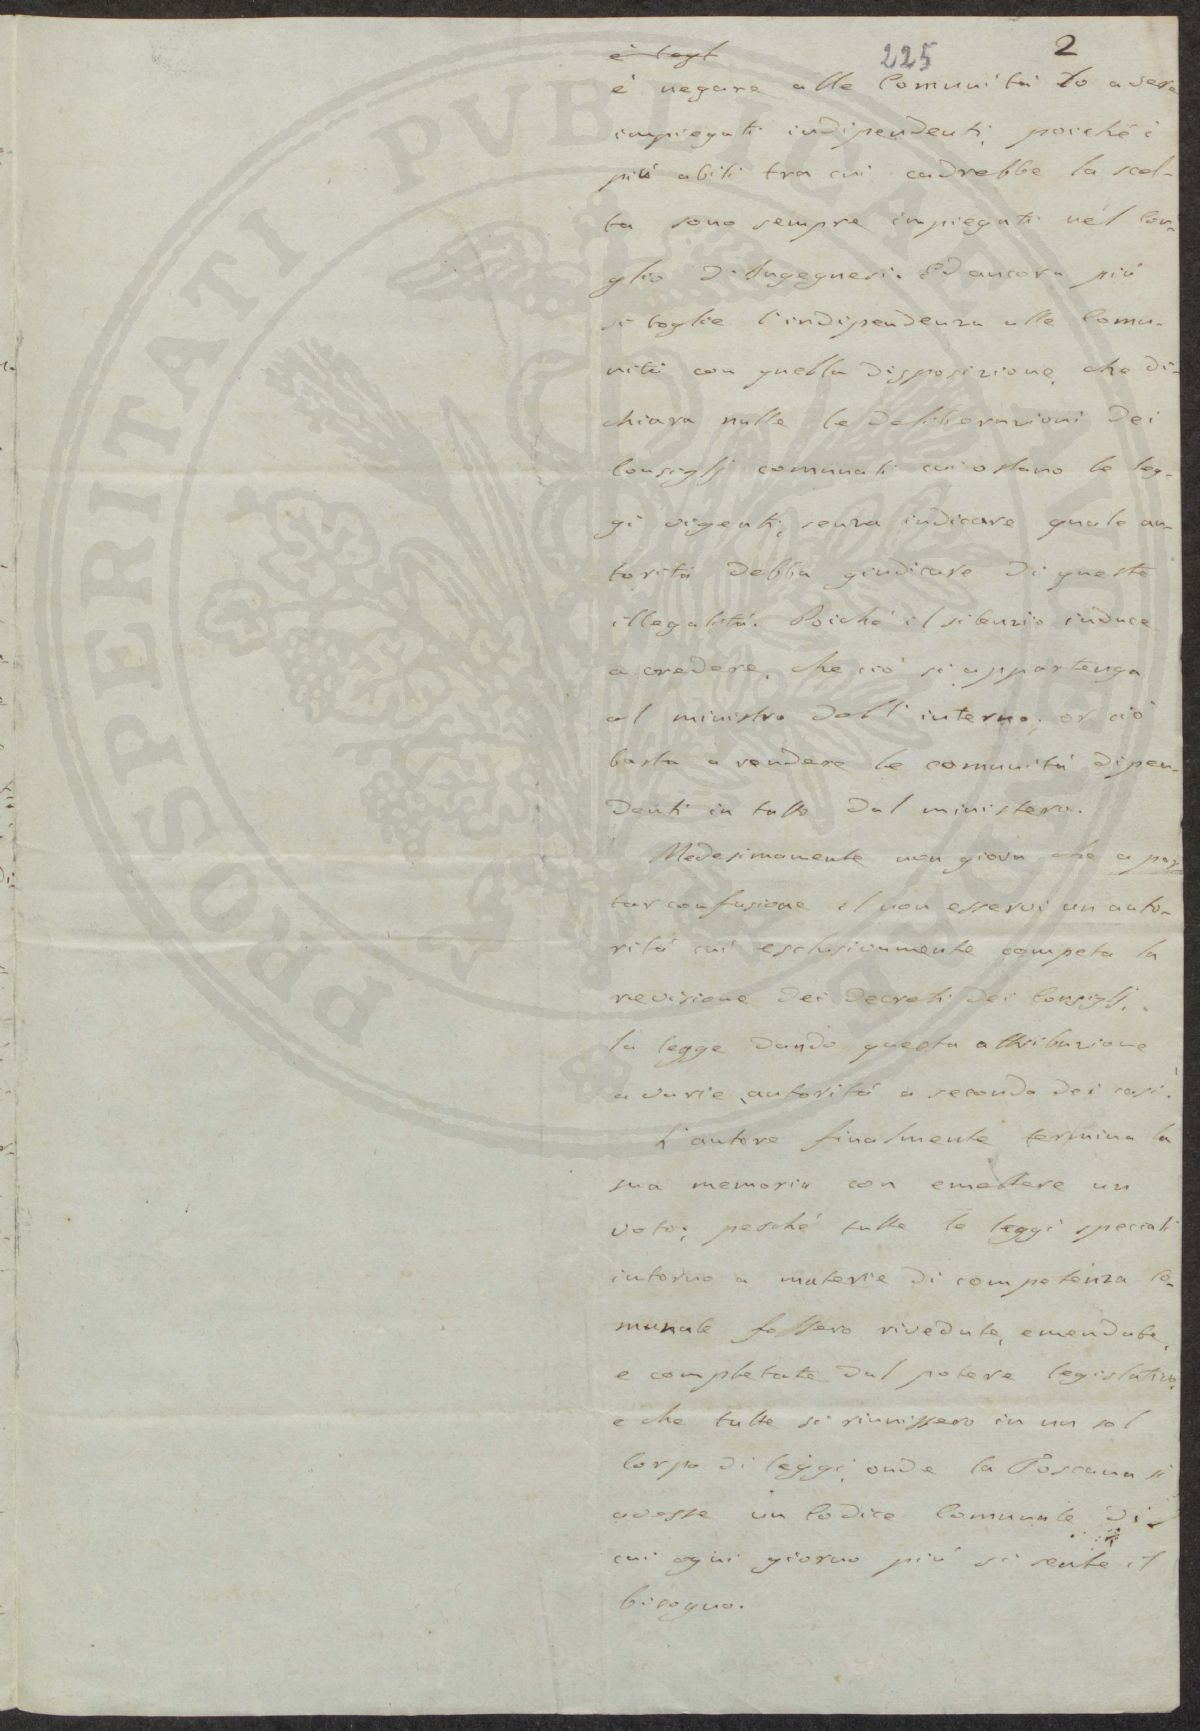 225 2
è togl
è negare alle Comunità lo avere
impiegati indipendenti, poiché i
più abili tra cui cadrebbe la scel-
ta sono sempre impiegati nel Con-
glio d'Ingegneri. Ed ancora più
si toglie l'indipendenza alle Comu-
nità con quella disposizione, che di-
chiara nulle le deliberazioni dei
Consiglj comunali cui ostano le leg-
gi vigenti, senza indicare quale au-
torità debba giudicare di queste
illegalità. Poiché il silenzio induce
a credere, che ciò si appartenga
al ministro dell'interno, or ciò
basta a rendere le comunità dipen-
denti in tutto dal ministero.
Medesimamente non giova che a por
tar confusione il non esservi un auto-
rità cui esclusivamente competa la
revisione dei decreti dei Consiglj,
la legge dando questa attribuzione
a varie autorità a seconda dei casi.
L'autore finalmente termina la
sua memoria con emettere un
voto; perché tutte le leggi speciali
intorno a materie di competenza co-
munale fossero rivedute, emendate,
e completate dal potere legislativo,
e che tutte si riunissero in un sol
Corpo di leggi, onde la Toscana si
avesse un Codice Comunale di
cui ogni giorno più si sente il
bisogno.
PROSPERITATI PVBLICAE